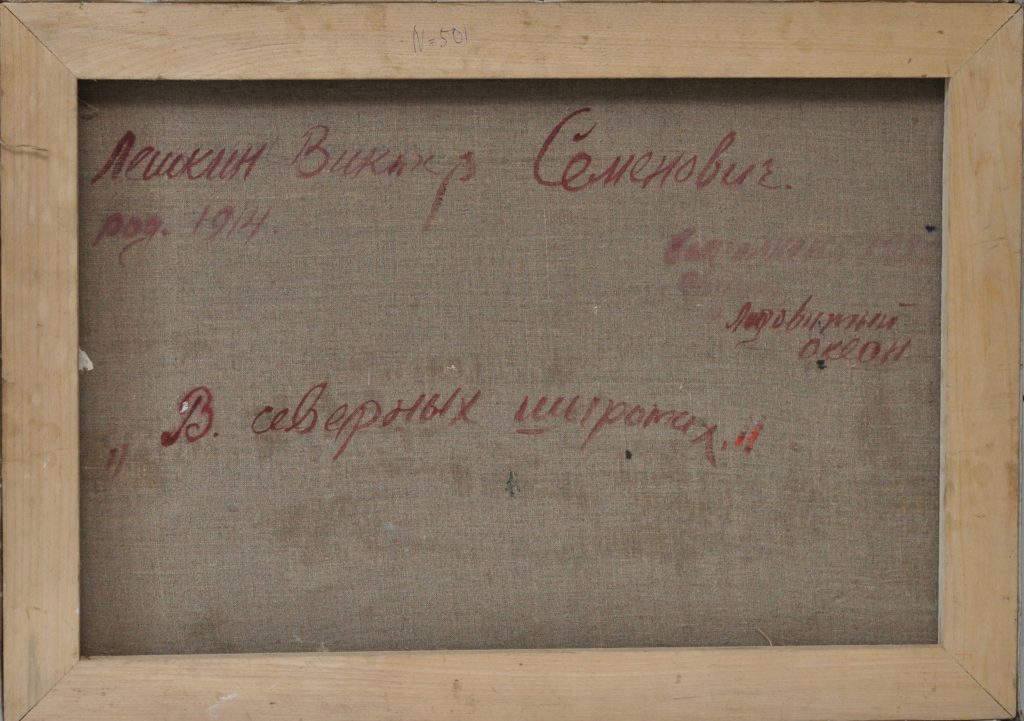 N=501
Лешкин Виктор Семенович.
род. 1914.
Ледовитый
океан
„В. северных широтах."